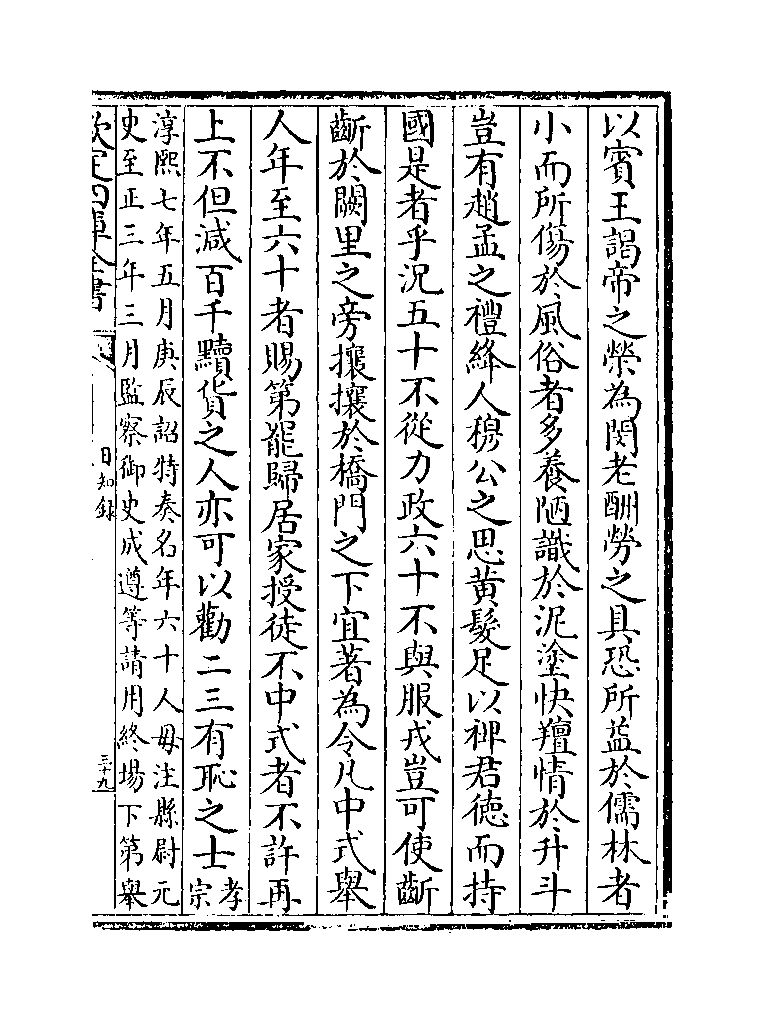 以賓王謁帝之榮為閔老酬勞之具恐所益於儒林者
小而所傷於風俗者多養陋識於泥塗快羶情於升斗
豈有趙孟之禮絳人穆公之思黄髮足以裨君徳而持
國是者乎況五十不從力政六十不與服戎豈可使齗
齗於闕里之旁攘攘於橋門之下宜著為令凡中式舉
人年至六十者賜第罷歸居家授徒不中式者不許再
上不但減百千黷貨之人亦可以勸二三有恥之士孝
宗
淳熙七年五月庚辰詔特奏名年六十人毋注縣尉元
史至正三年三月監察御史成遵等請用終場下第舉
欽定四庫全書
日知録
三十九